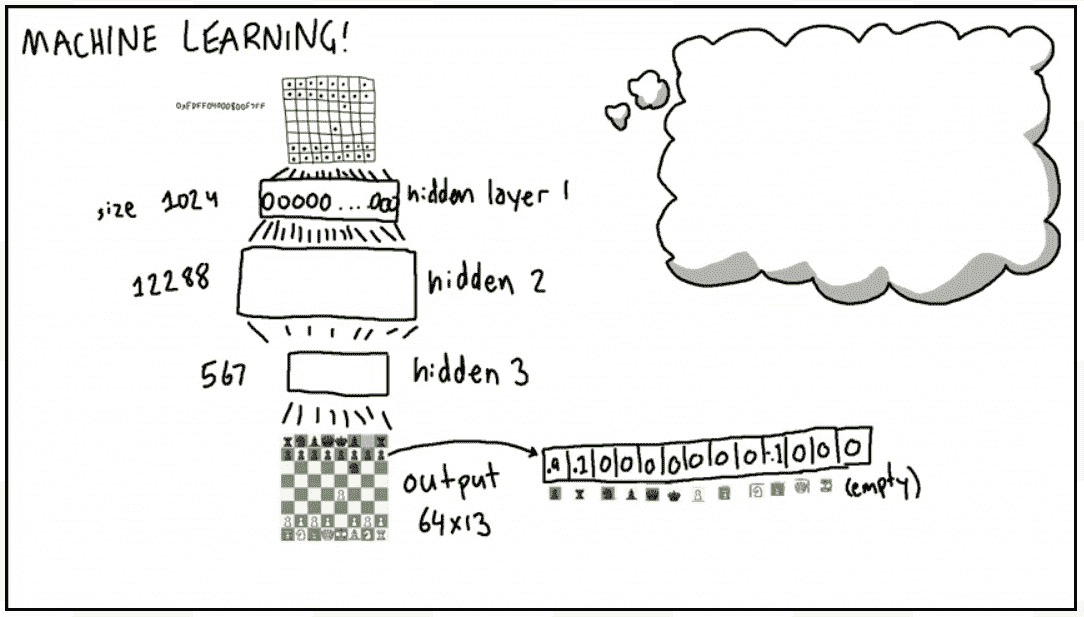 MACHINE LEARNING!
size 1024
00000....000
hidden layer 1
12288
hidden 2
567
hidden 3
output
64x13
.9 .1 0 0 0 0 0 0 0 -.1 0 0 0
(empty)